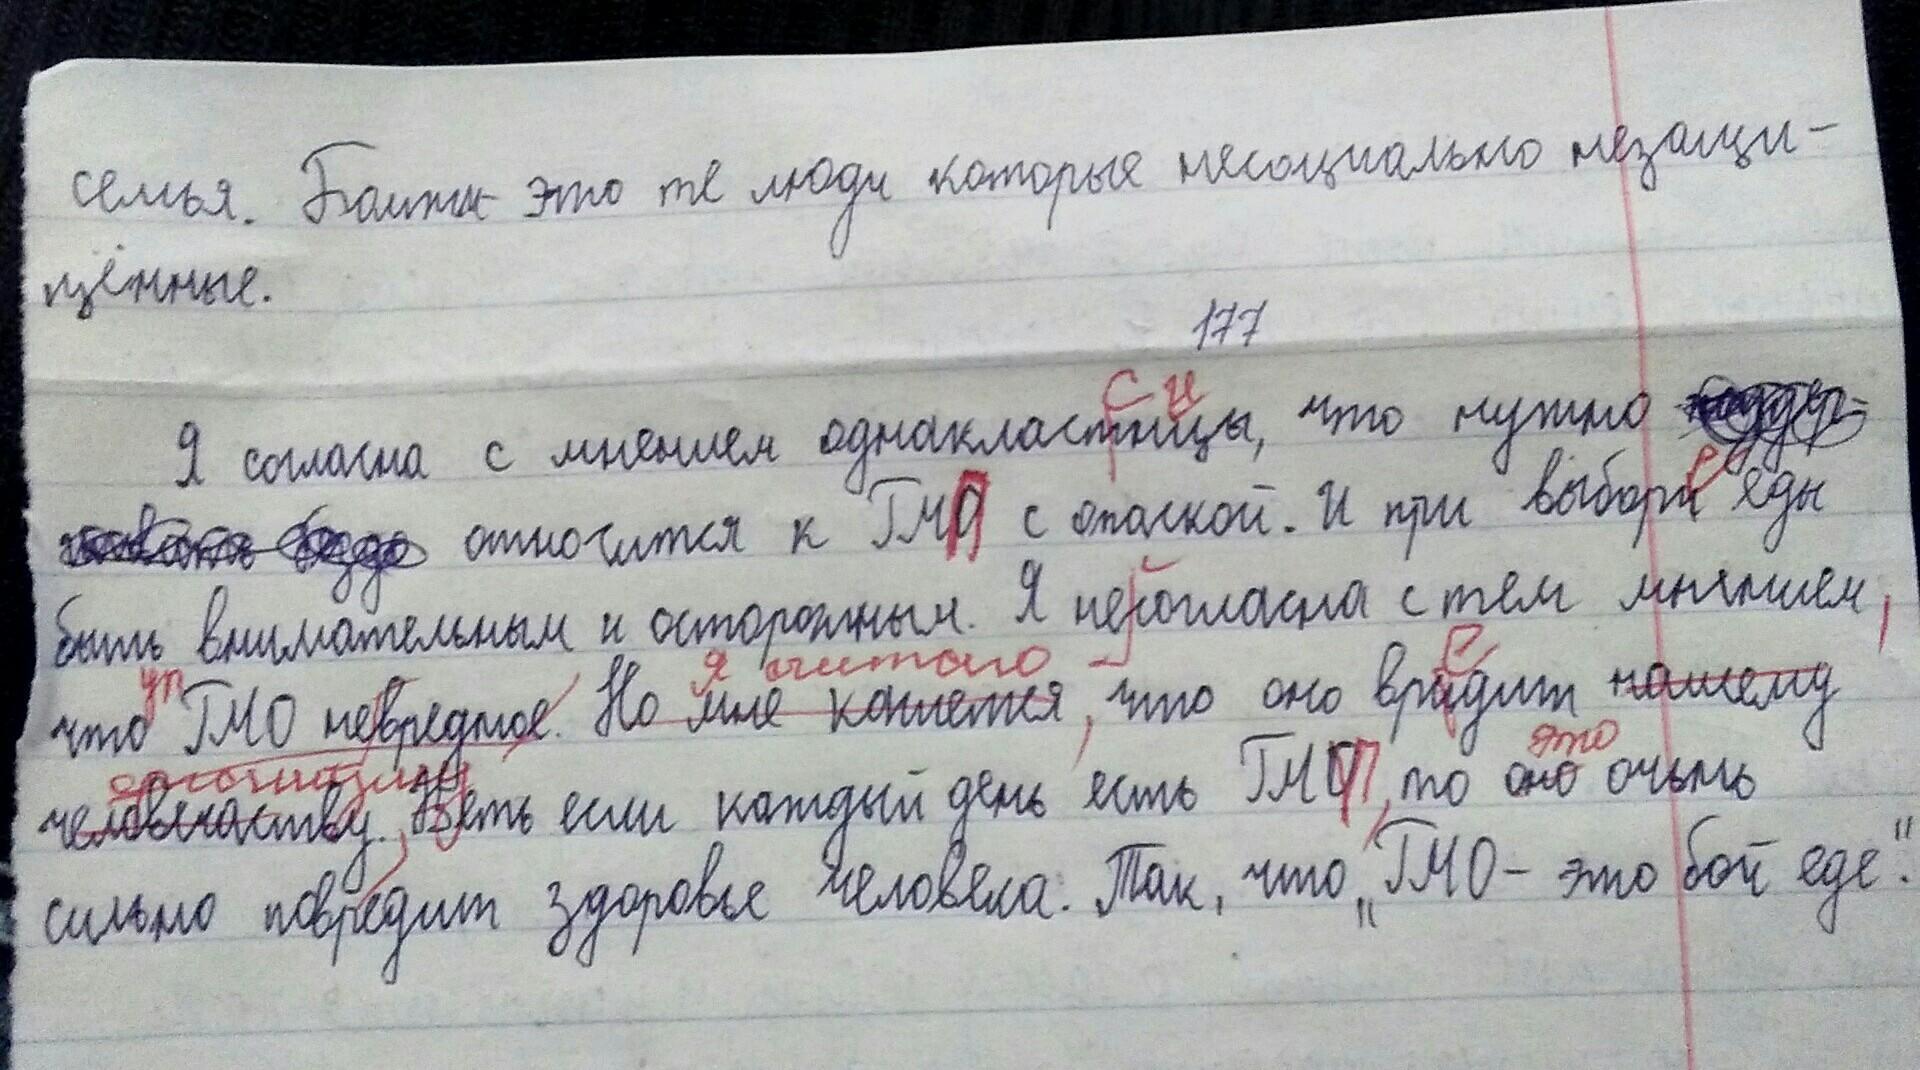 семья. Бомжи это те люди которые несоциально незащи-
щённые.
177
с и
Я согласна с мнением однакластницы, что нужно
относится к ГМО с опаской. И при выбори еды
быть внимательным и осторожным. Я несогласна с тем мнением,
я считаю е
что ГМО невредное. Но мне кажется, что оно вридит нашему
организму это
человечаству. Веть если каждый день есть ГМО, то оно очень
сильно повредит здоровье человека. Так, что „ГМО - это бой еде".